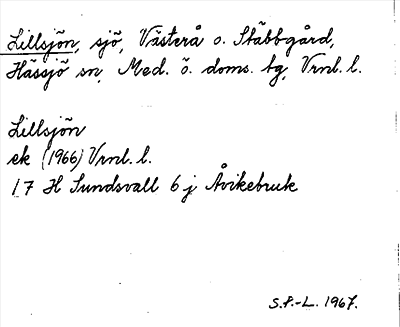 Lillsjön, sjö, Västerå o. Stäbbgård,
Hässjö sn, Med. ö. doms. tg, Vrnl. l.
Lillsjön
ek (1966) Vrnl. l.
17 H Sundsvall 6 j Åvikebruk
S.P.-L. 1967.